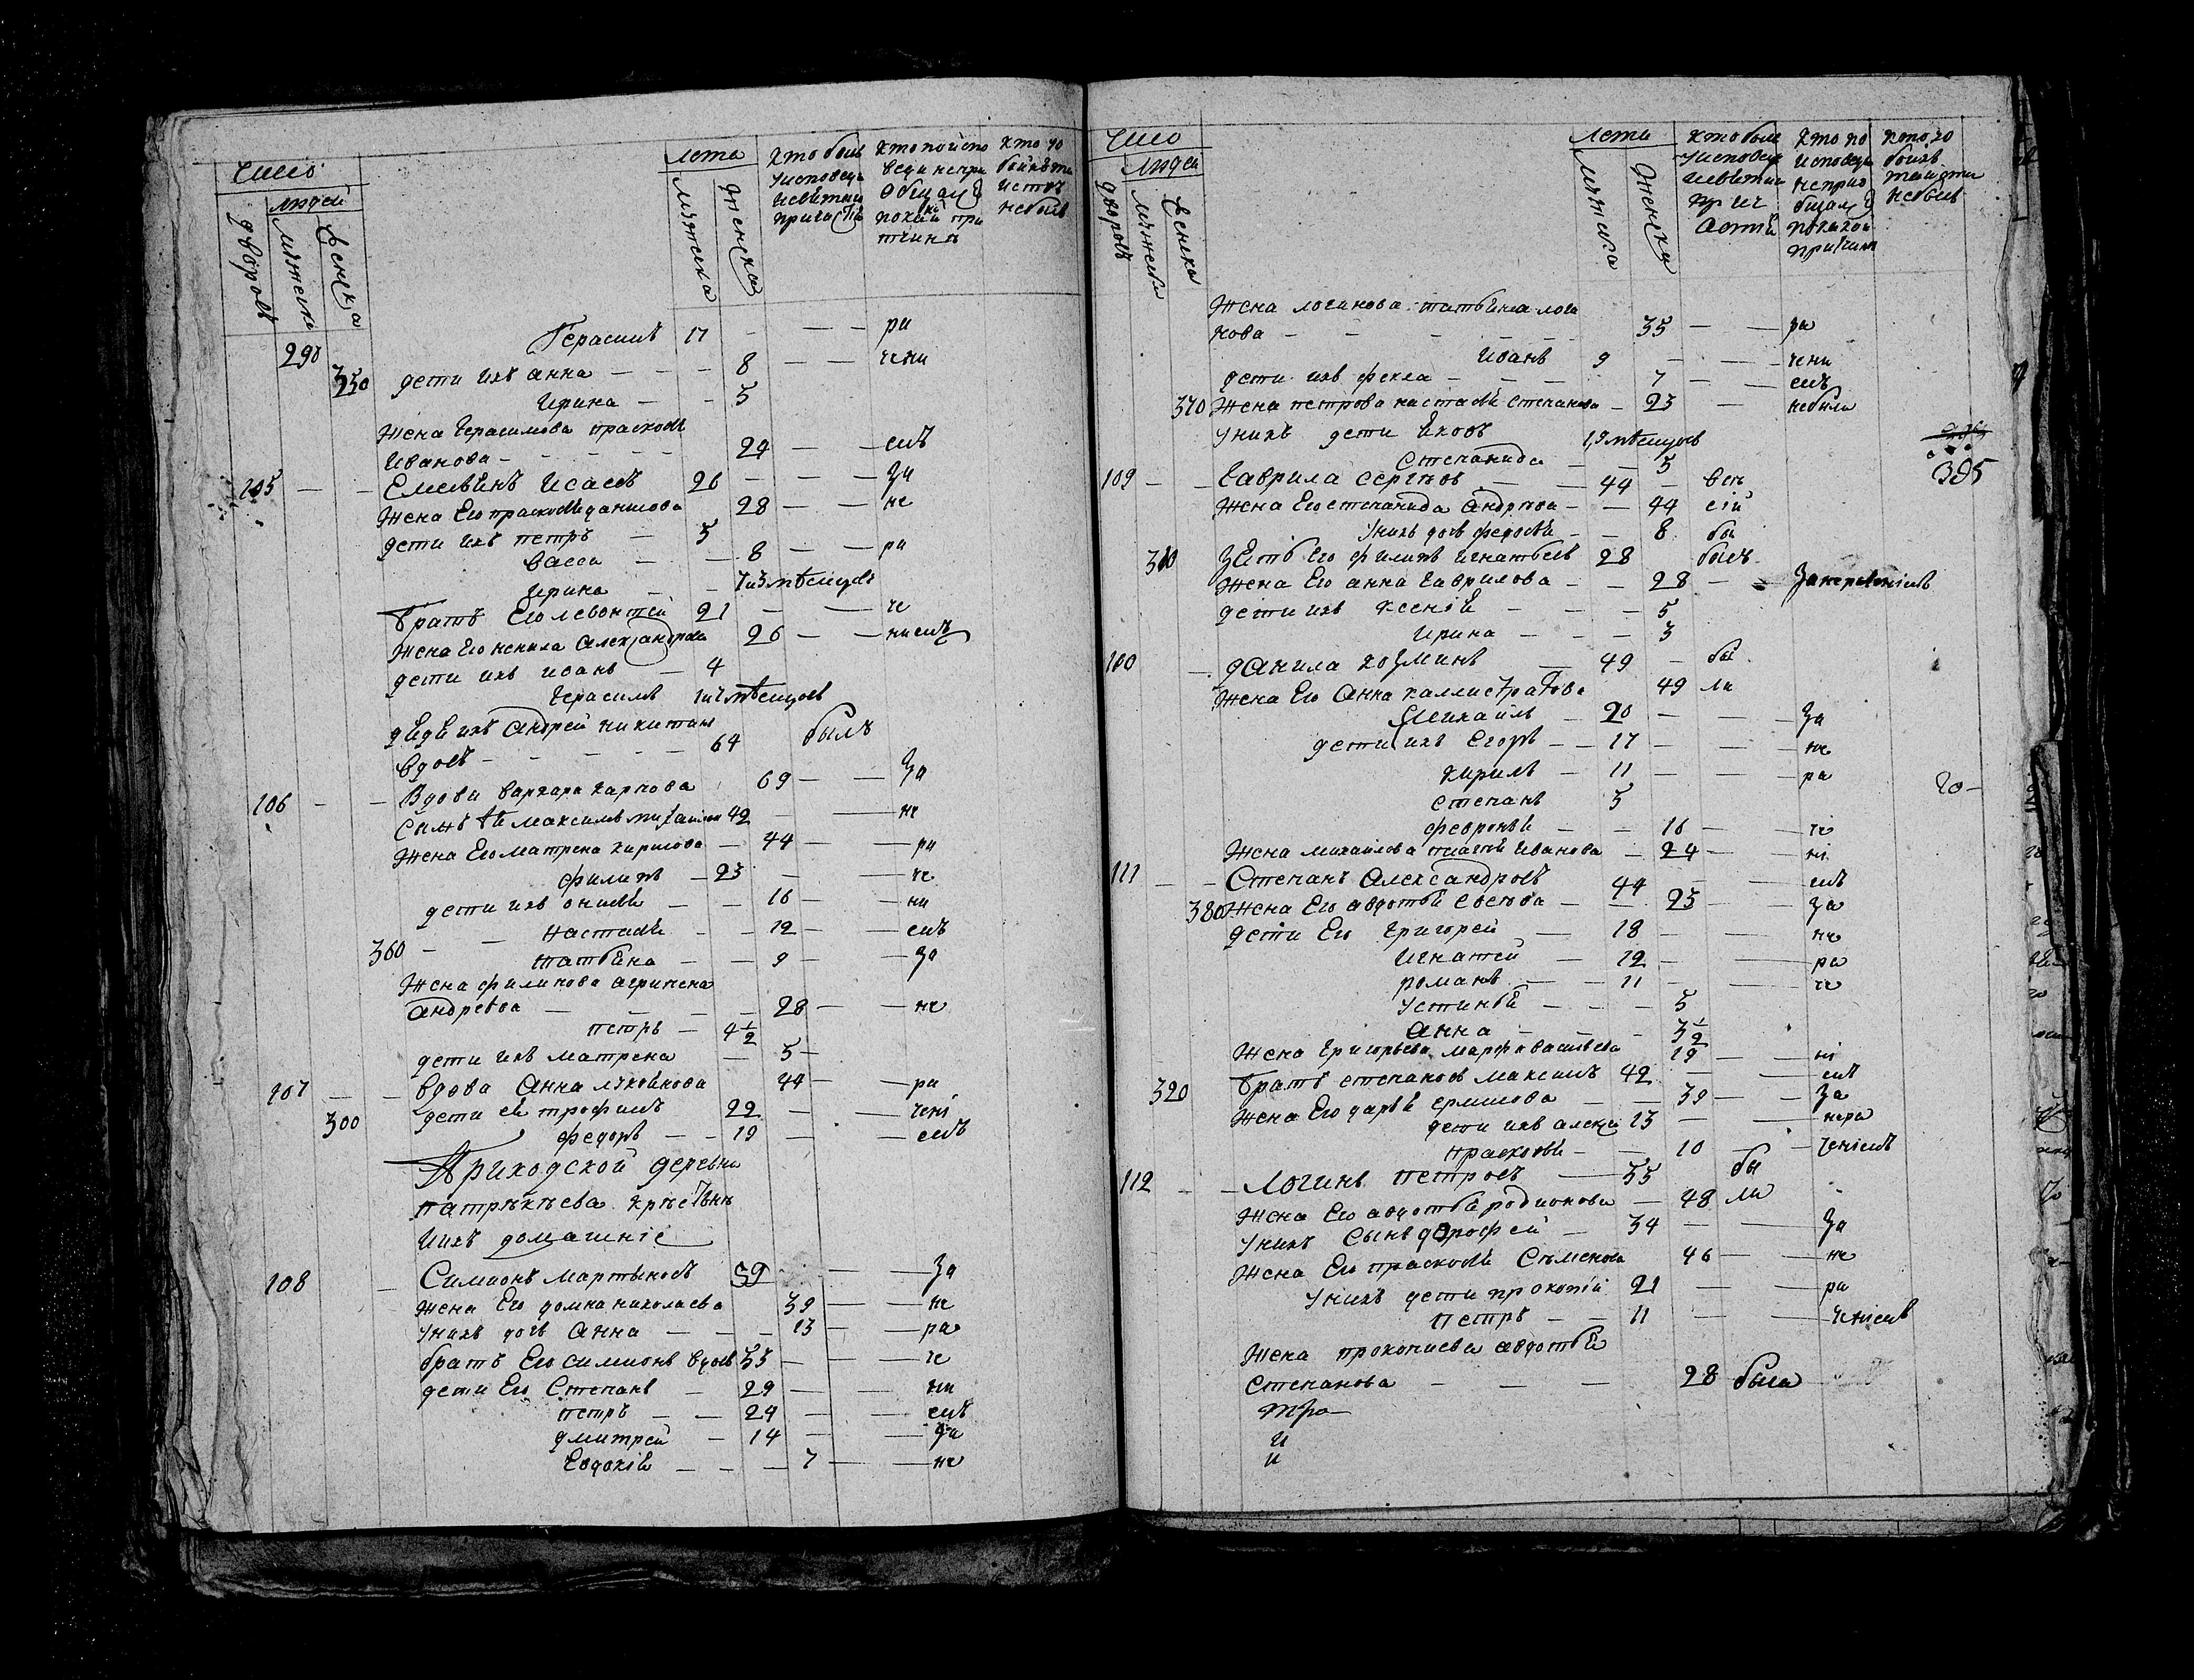 Число
людей
дворовъ
мужеска
женска
лета
мужеска
женска
кто былъ
у исповеди
и свѣтаго
причастiя
кто по испо
веди не при
общался
по какой при
тчинѣ
кто у о
боихъ та
инствъ
не былъ
Герасимъ 17 — — — ра
290
350 дети ихъ анна — — — 8 — — чени
Ирина — — 5
Жена Герасимова прасковя
Иванова — — — — — 24 — — емъ
105 — — Емелиянъ Исаевъ 26 — — — за
Жена Его прасковя данилова 28 — — не
дети ихъ петръ — 5
васса — — 8 — — ра
Ирина — — 1 и 3 мѣсецовъ
братъ Его левонтей 21 — — че
Жена Его ненила Александрова 26 — — ниемъ
дети ихъ иванъ — 4
Герасимъ 1 и 2 мѣсецовъ
дядя ихъ Андрей никитинъ
вдовъ — — — — 64 былъ
106 — — Вдова варвара карпова 69 — — За
Сынъ Ея Максимъ 42 — — не
Жена Его матрена кирилова — 44 — — ра
филипъ — 23 — — че
дети ихъ — — 16 — — ни
настася — — 12 — — емъ
360 — — татьяна — — 9 — — За
Жена филипова агрипена
андреева — — — — 28 — — не
петръ — 4 1/2
дети ихъ матрена — 5 —
107 — — вдова Анна 44 — — ра
300 дети ея трофимъ 22 — — ченi
федоръ — — 19 — — емъ
Приходской деревни
патрѣкѣева крѣстьяне
и ихъ домашнiе
108 — Симионъ мартыновъ 59 — — За
Жена Его домна николаева 39 — — не
у нихъ дочь анна — — — 13 — — ра
братъ Его симионъ вдовъ 55 — — че
дети Его Степанъ — 29 — — ни
петръ — — 24 — — емъ
дмитрей — 14 — — За
Евдокiя — — — 7 — — не
Число
людей
дворовъ
мужеска
женска
лета
мужеска
женска
кто былъ
у исповеди
и свѣтаго
прич
астiя
кто по
исповеди
не прио
бщался
по какой
причинѣ
кто у о
боихъ
таинствъ
не былъ
Жена логинова татьяна логи
нова — — — — — 35 — — ра
Иванъ 9 — — чени
дети ихъ фекла — — — 7 — — емъ
370 Жена петрова настася степанова — 23 — небыла
у нихъ дети Яковъ мѣсецовъ
Степанида — — 5
385
109 — — Гаврила сергѣевъ — — 44 — все
Жена Его степанида Андреева — — 44 сiи
у нихъ дочь федосья — — 8 бы
310 Зять Его филипъ игнатьевъ 28 былъ
Жена Его анна Гаврилова — — 28 — — За нерачениемъ
дети ихъ Ксенiя — — — 5
ирина — — — 3
100 — данила козминъ — 49 — бы
Жена Его Анна каллистратова 49 ли
Михайлъ — 20 — — За
дети ихъ Егоръ — — 17 — — не
кирилъ — 11 — — ра
степанъ 5
20 —
февронья — — 16 — — че
Жена михаилова Иванова — 24 — — нi
111 — — Степанъ Александровъ 44 — — емъ
380 Жена Его авдотья — — 25 — — За
дети Его Григорей — 18 — — не
Игнатей — 12 — — ра
романъ — — 11 — — че
устинья — — — 5
Анна — — — 3 1/2
Жена Григорьева марфа васильева 19 — — нi
320 братъ степановъ максимъ 42 — — емъ
Жена Его дарья ермилова — — 39 — — За
дети ихъ алексей 13 — — нера
прасковя — — 10 — — ченiемъ
112 — — Логинъ петровъ — 55 бы
Жена Его авдотья родионова — 48 ли
у нихъ Сынъ дорофей — 34 — — За
Жена Его прасковя Семенова 46 — — не
у нихъ дети прокопiй 21 — — ра
петръ — — 11 — — ченiемъ
Жена прокопиева авдотья
степанова — — — 28 была
тра
и
и